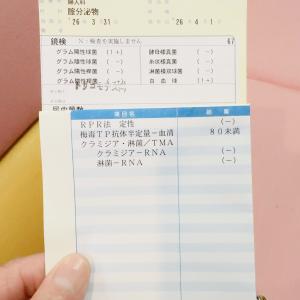 婦人科
膣分泌物
'26. 3.31 '26. 4. 1
鏡検 N:検査を実施しません 67
グラム陽性球菌 (1+) 酵母様真菌 (-)
グラム陽性桿菌 (-) 糸状様真菌 (-)
グラム陰性球菌 (-) 淋菌様双球菌 (-)
グラム陰性桿菌 (-) 白血球 (1+)
項目名 結果
RPR法 定性 (-)
梅毒TP抗体半定量-血清 80未満
クラミジア・淋菌/TMA
クラミジア-RNA (-)
淋菌-RNA (-)